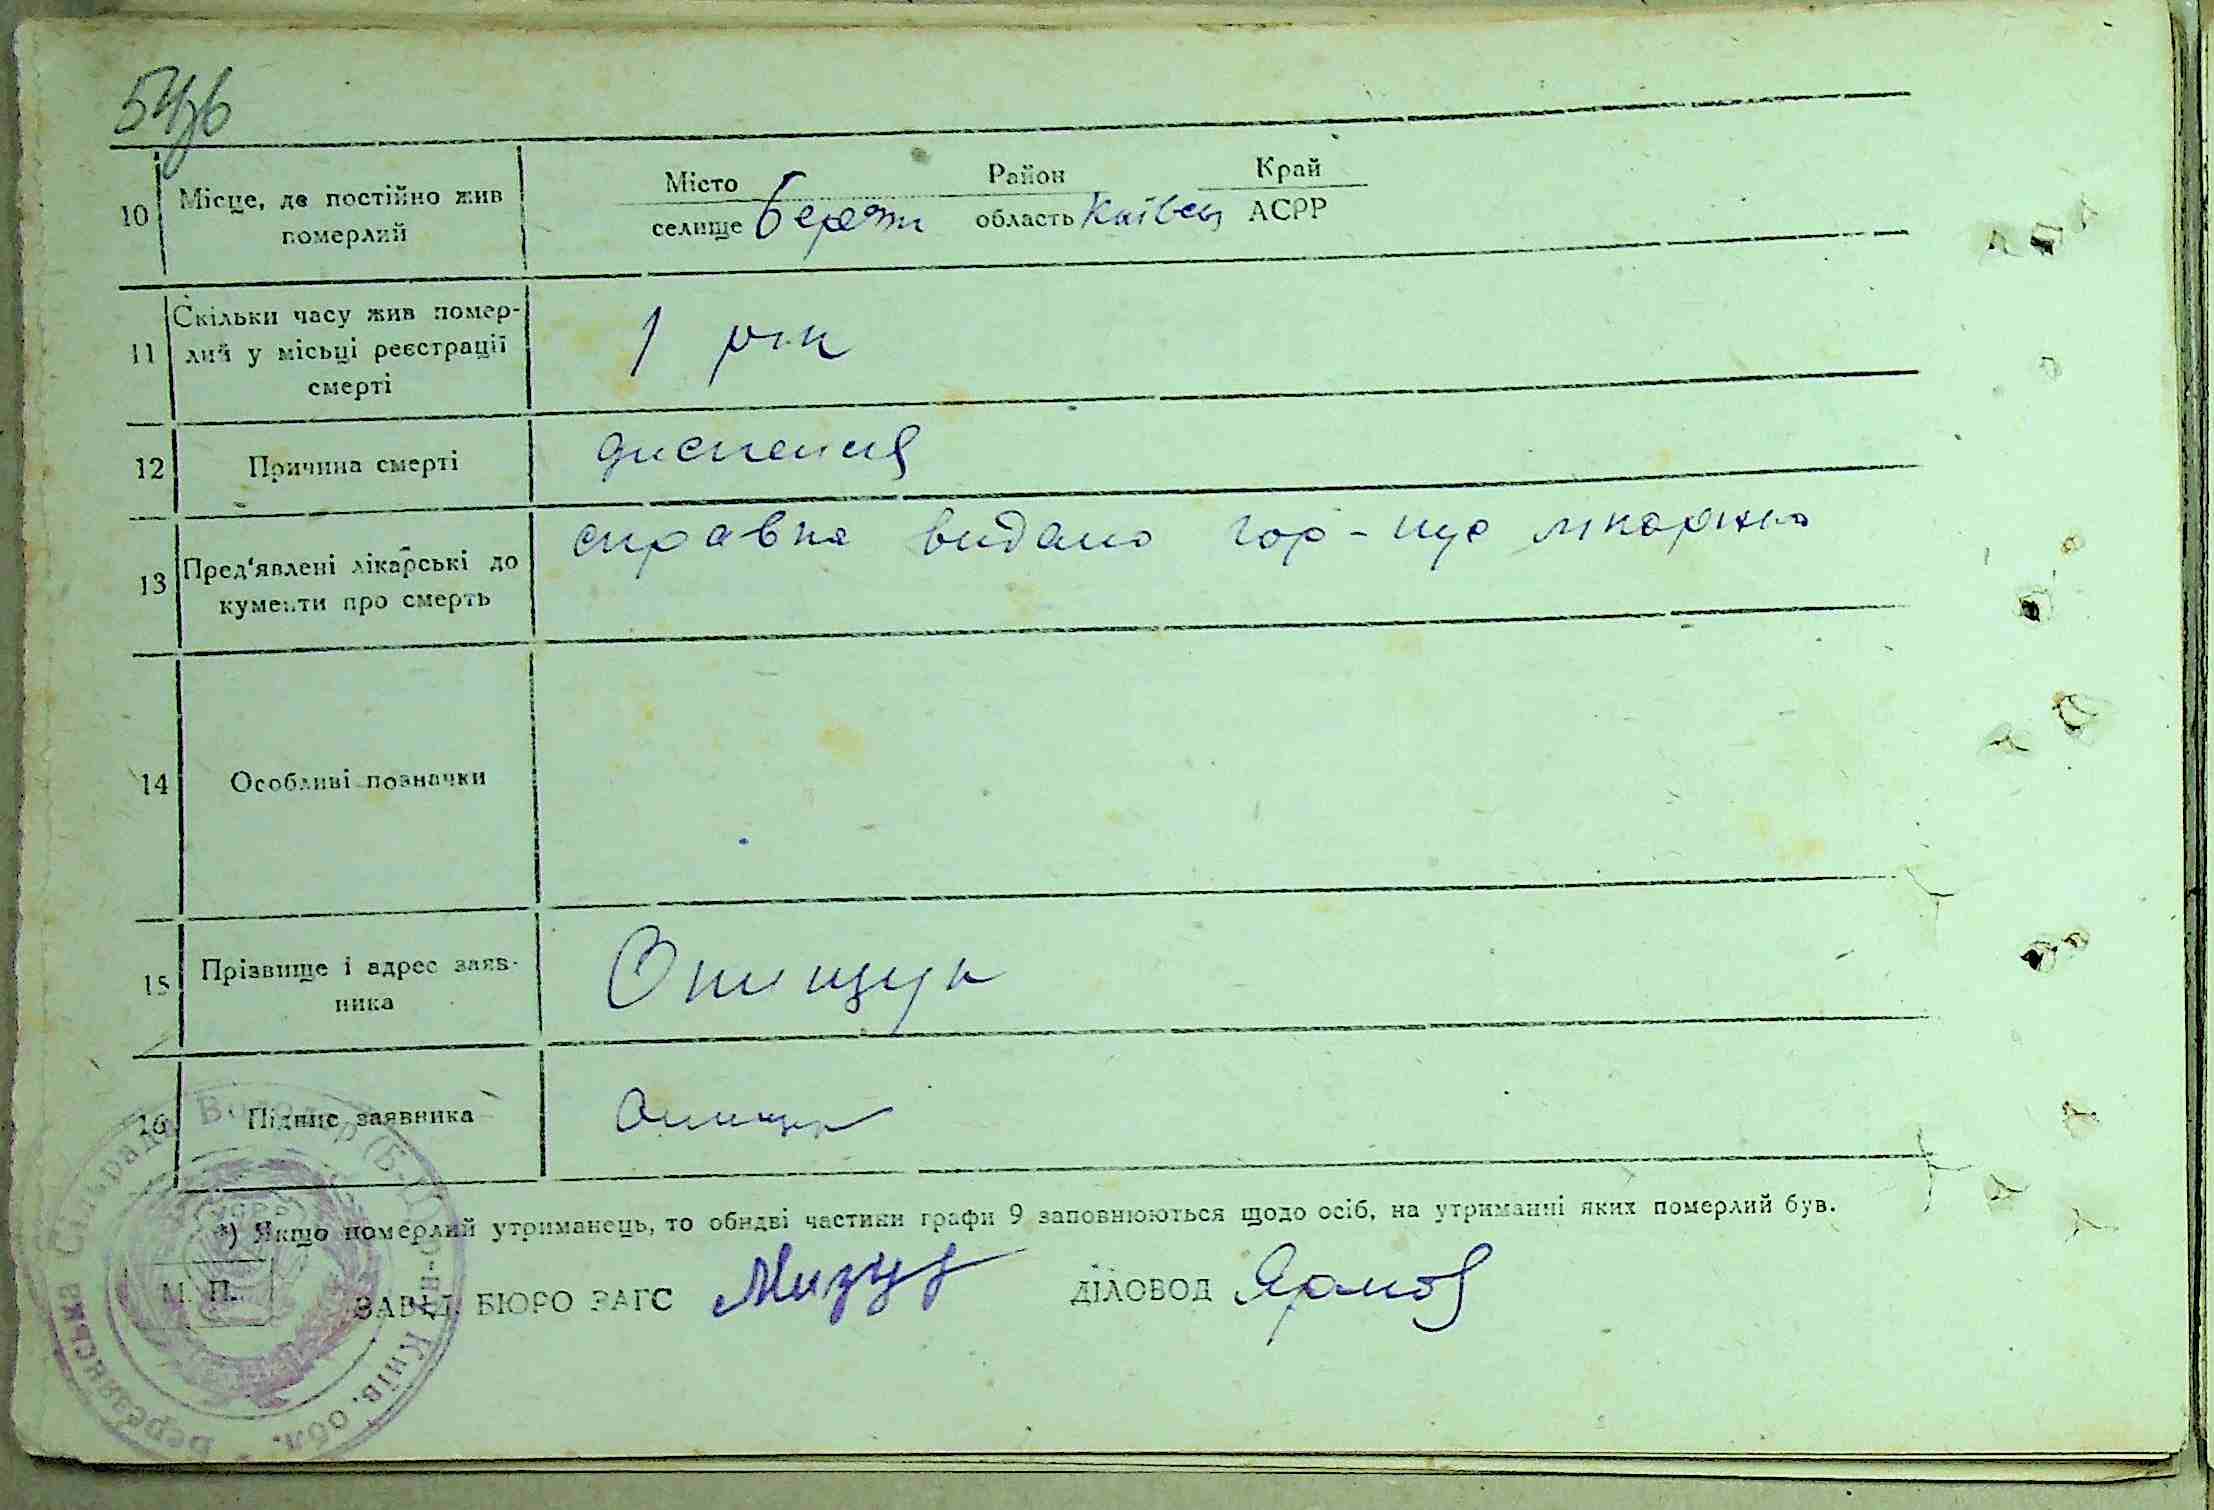 54зв
Місто Район Край
10 Місце, де постійно жив
померлий
селище Березна область Київськ АСРР
Скільки часу жив помер-
11 лий у місьці реєстрації
смерті
1 рік
12 Причина смерті диспепсія
13 Пред'явлені лікарські до
кументи про смерть
справка видано лікаркою
14 Особливі позначки
15 Прізвище і адрес заяв-
ника
Онищук
16 Підпис заявника Онищук
*) Якщо померлий утриманець, то обидві частини графи 9 заповнюються щодо осіб, на утриманні яких померлий був.
М. П.
ЗАВІД. БЮРО ЗАГС ДІЛОВОД
Березянська Сільрада Волод. р (Б-Ц) р-н Київ. обл.
УСРР